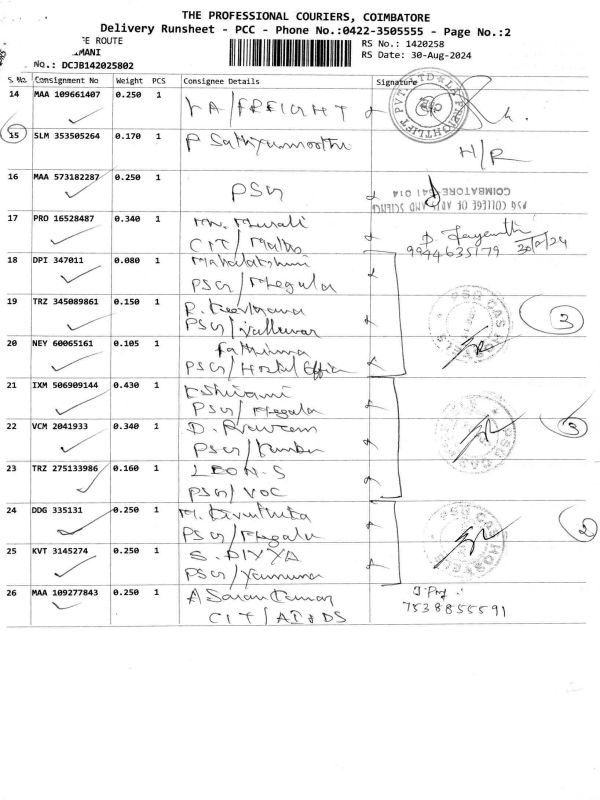 THE PROFESSIONAL COURIERS, COIMBATORE
Delivery Runsheet - PCC - Phone No.:0422-3505555 - Page No.:2
E ROUTE
MANI
No.: DCJB142025802
RS No.: 1420258
RS Date: 30-Aug-2024
S.No. Consignment No Weight PCS Consignee Details Signature
14 MAA 109661407 0.250 1 LA/FREIGHT
15 SLM 353505264 0.170 1 P Sathiyamoorthi H/R
16 MAA 573182287 0.250 1 PSG
PSG COLLEGE OF ARTS AND SCIENCE
COIMBATORE-641 014
17 PRO 16528487 0.340 1 Mr. Murali
CIT/Maths
D. Jayanthi
9994635179 30/8/24
18 DPI 347011 0.080 1 Mahalakshmi
PSG/Megala
19 TRZ 345089861 0.150 1 R.
PSG/Valluvar
3
20 NEY 60065161 0.105 1 Fathima
PSG/Hostel Office
21 IXM 506909144 0.430 1
PSG/Megala
22 VCM 2041933 0.340 1 D. Praveen
PSG/Kambar
3
23 TRZ 275133986 0.160 1 LEON.S
PSG/VOC
24 DDG 335131 0.250 1 M. Kiruthika
PSG/Megala
2
25 KVT 3145274 0.250 1 S. DIVYA
PSG/Yamuna
26 MAA 109277843 0.250 1 A Saran Kumar
CIT/AI&DS
7538855591